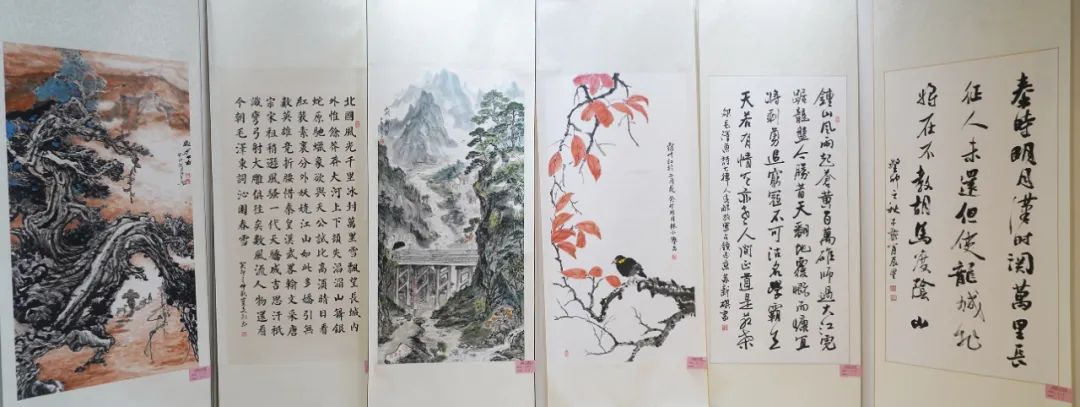 北國風光千里冰封萬里雪飄望長城內
外惟餘莽莽大河上下頓失滔滔山舞銀
蛇原馳蠟象欲與天公試比高須晴日看
紅裝素裹分外妖嬈江山如此多嬌引無
數英雄競折腰惜秦皇漢武略輸文采唐
宗宋祖稍遜風騷一代天驕成吉思汗衹
識彎弓射大雕俱往矣數風流人物還看
今朝毛澤東詞沁園春雪
鍾山風雨起蒼黃百萬雄師過大江虎
踞龍盤今勝昔天翻地覆慨而慷宜
將剩勇追窮寇不可沽名學霸王
天若有情天亦老人間正道是滄桑
秦時明月漢時関萬里長
征人未還但使龍城飛
將在不教胡馬度陰山
癸卯之秋